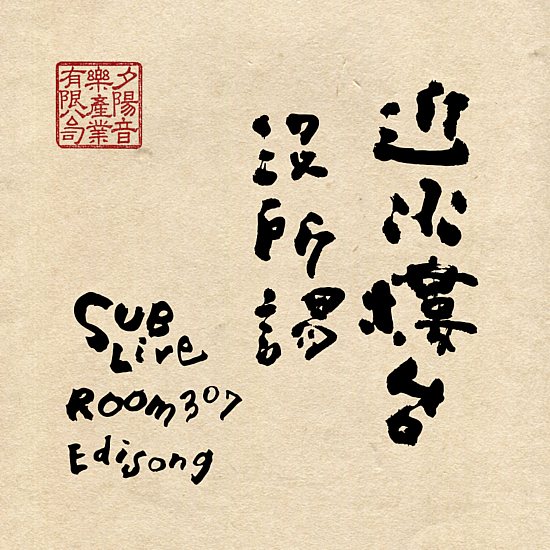 近水樓台
没所謂
夕陽音
樂產業
有限公司
SUB
Live
Room307
Edisong